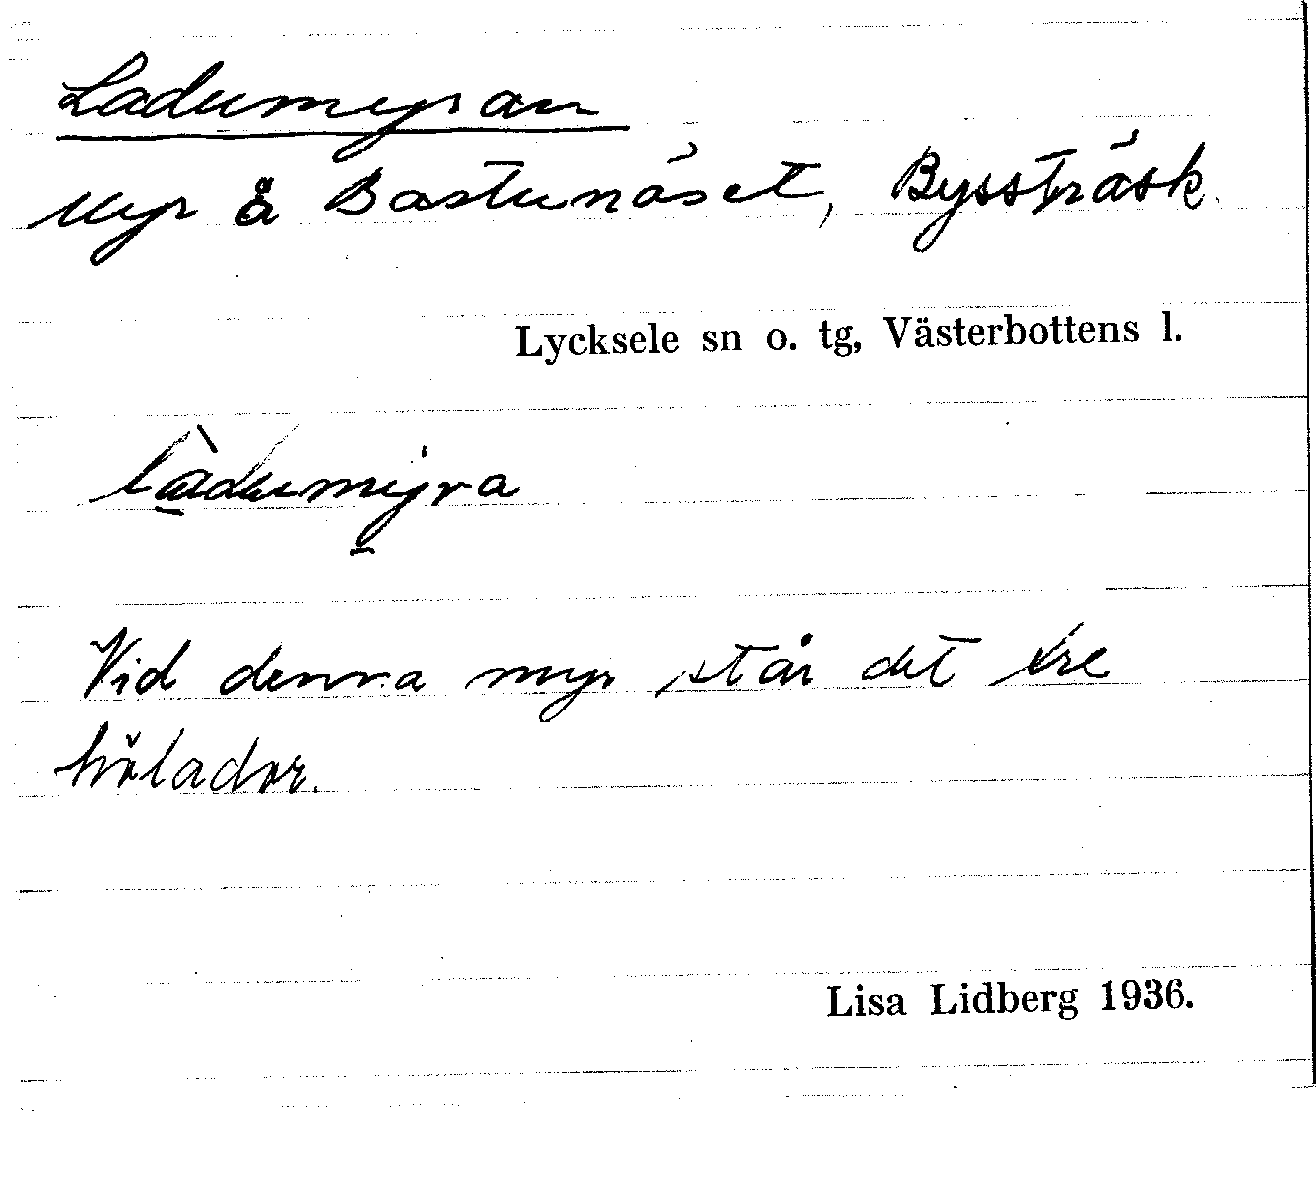 Ladumyran
Myr å Bastunäset, Byssträsk.
Lycksele sn o. tg, Västerbottens l.
làdumyra
Vid denna myr står det tre
hölador.
Lisa Lidberg 1936.